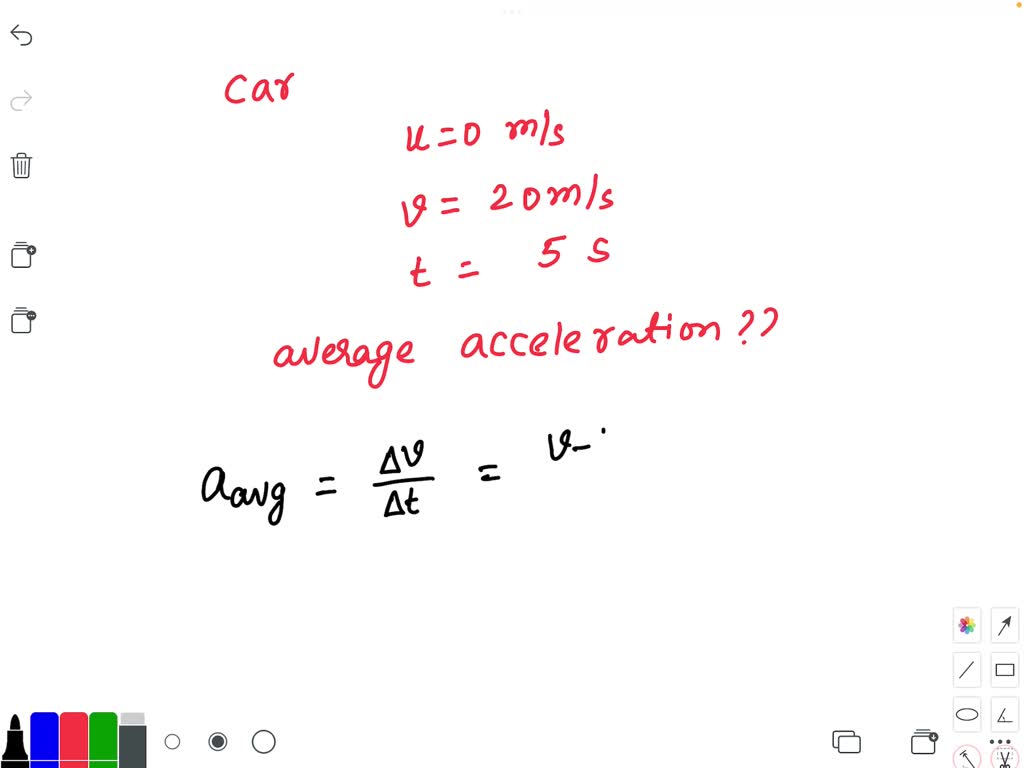 Car
u = 0 m/s
v = 20 m/s
t = 5 s
average acceleration ??
a avg = Δv/Δt = v -